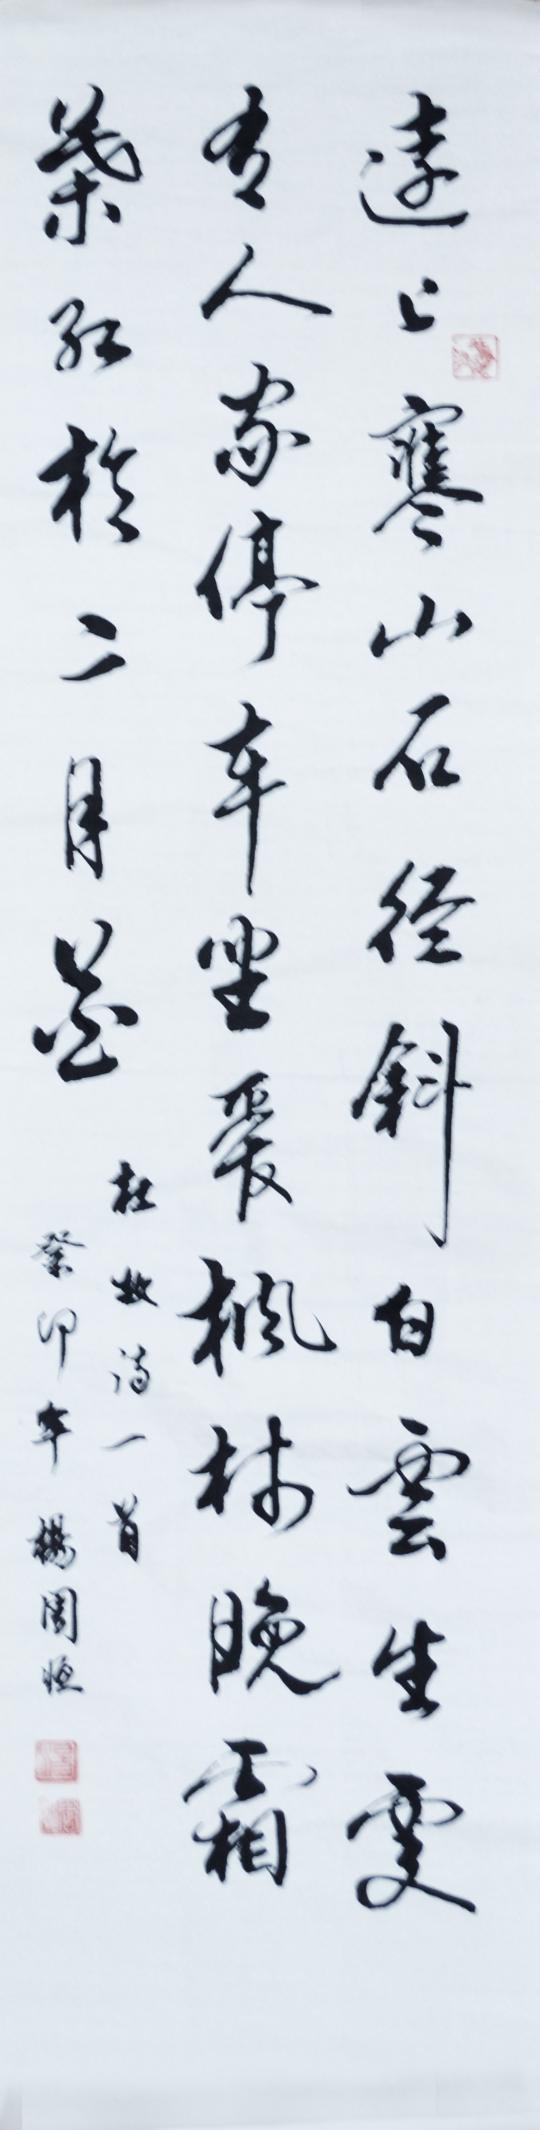 遠上寒山石径斜白雲生處
有人家停车坐愛楓林晚霜
葉紅於二月花
杜牧诗一首
癸卯年 楊周恒